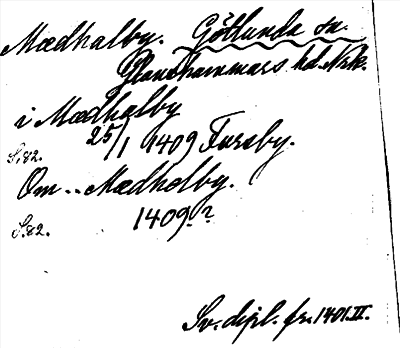 Mædhalby. Götlunda sn.
Glanshammars hd. Nrk.
i Mædhalby
25/1 1409 Fursby.
S. 82.
Om .. Mædholby.
1409.?
S. 82.
Sv. dipl. fr. 1401. II.